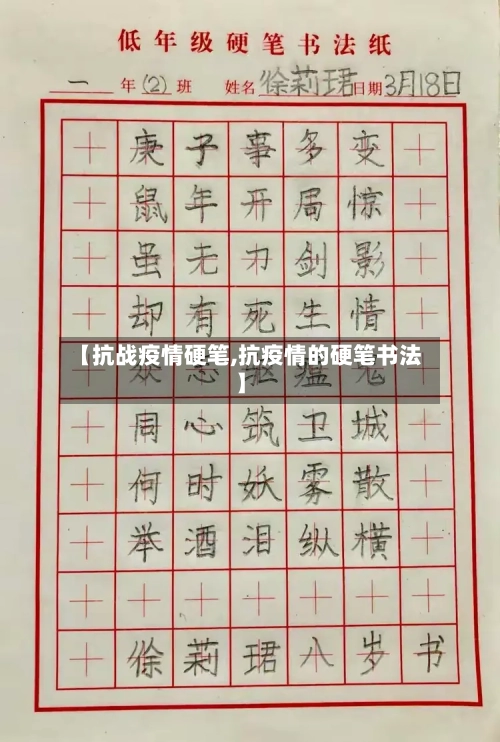 低年级硬笔书法纸
一年(2)班 姓名徐莉珺日期3月18日
庚子事多变
鼠年开局惊
虽无刀剑影
却有死生情
【抗战疫情硬笔,抗疫情的硬笔书法
】
众志驱瘟鬼
同心筑卫城
何时妖雾散
举酒泪纵横
徐莉珺八岁书